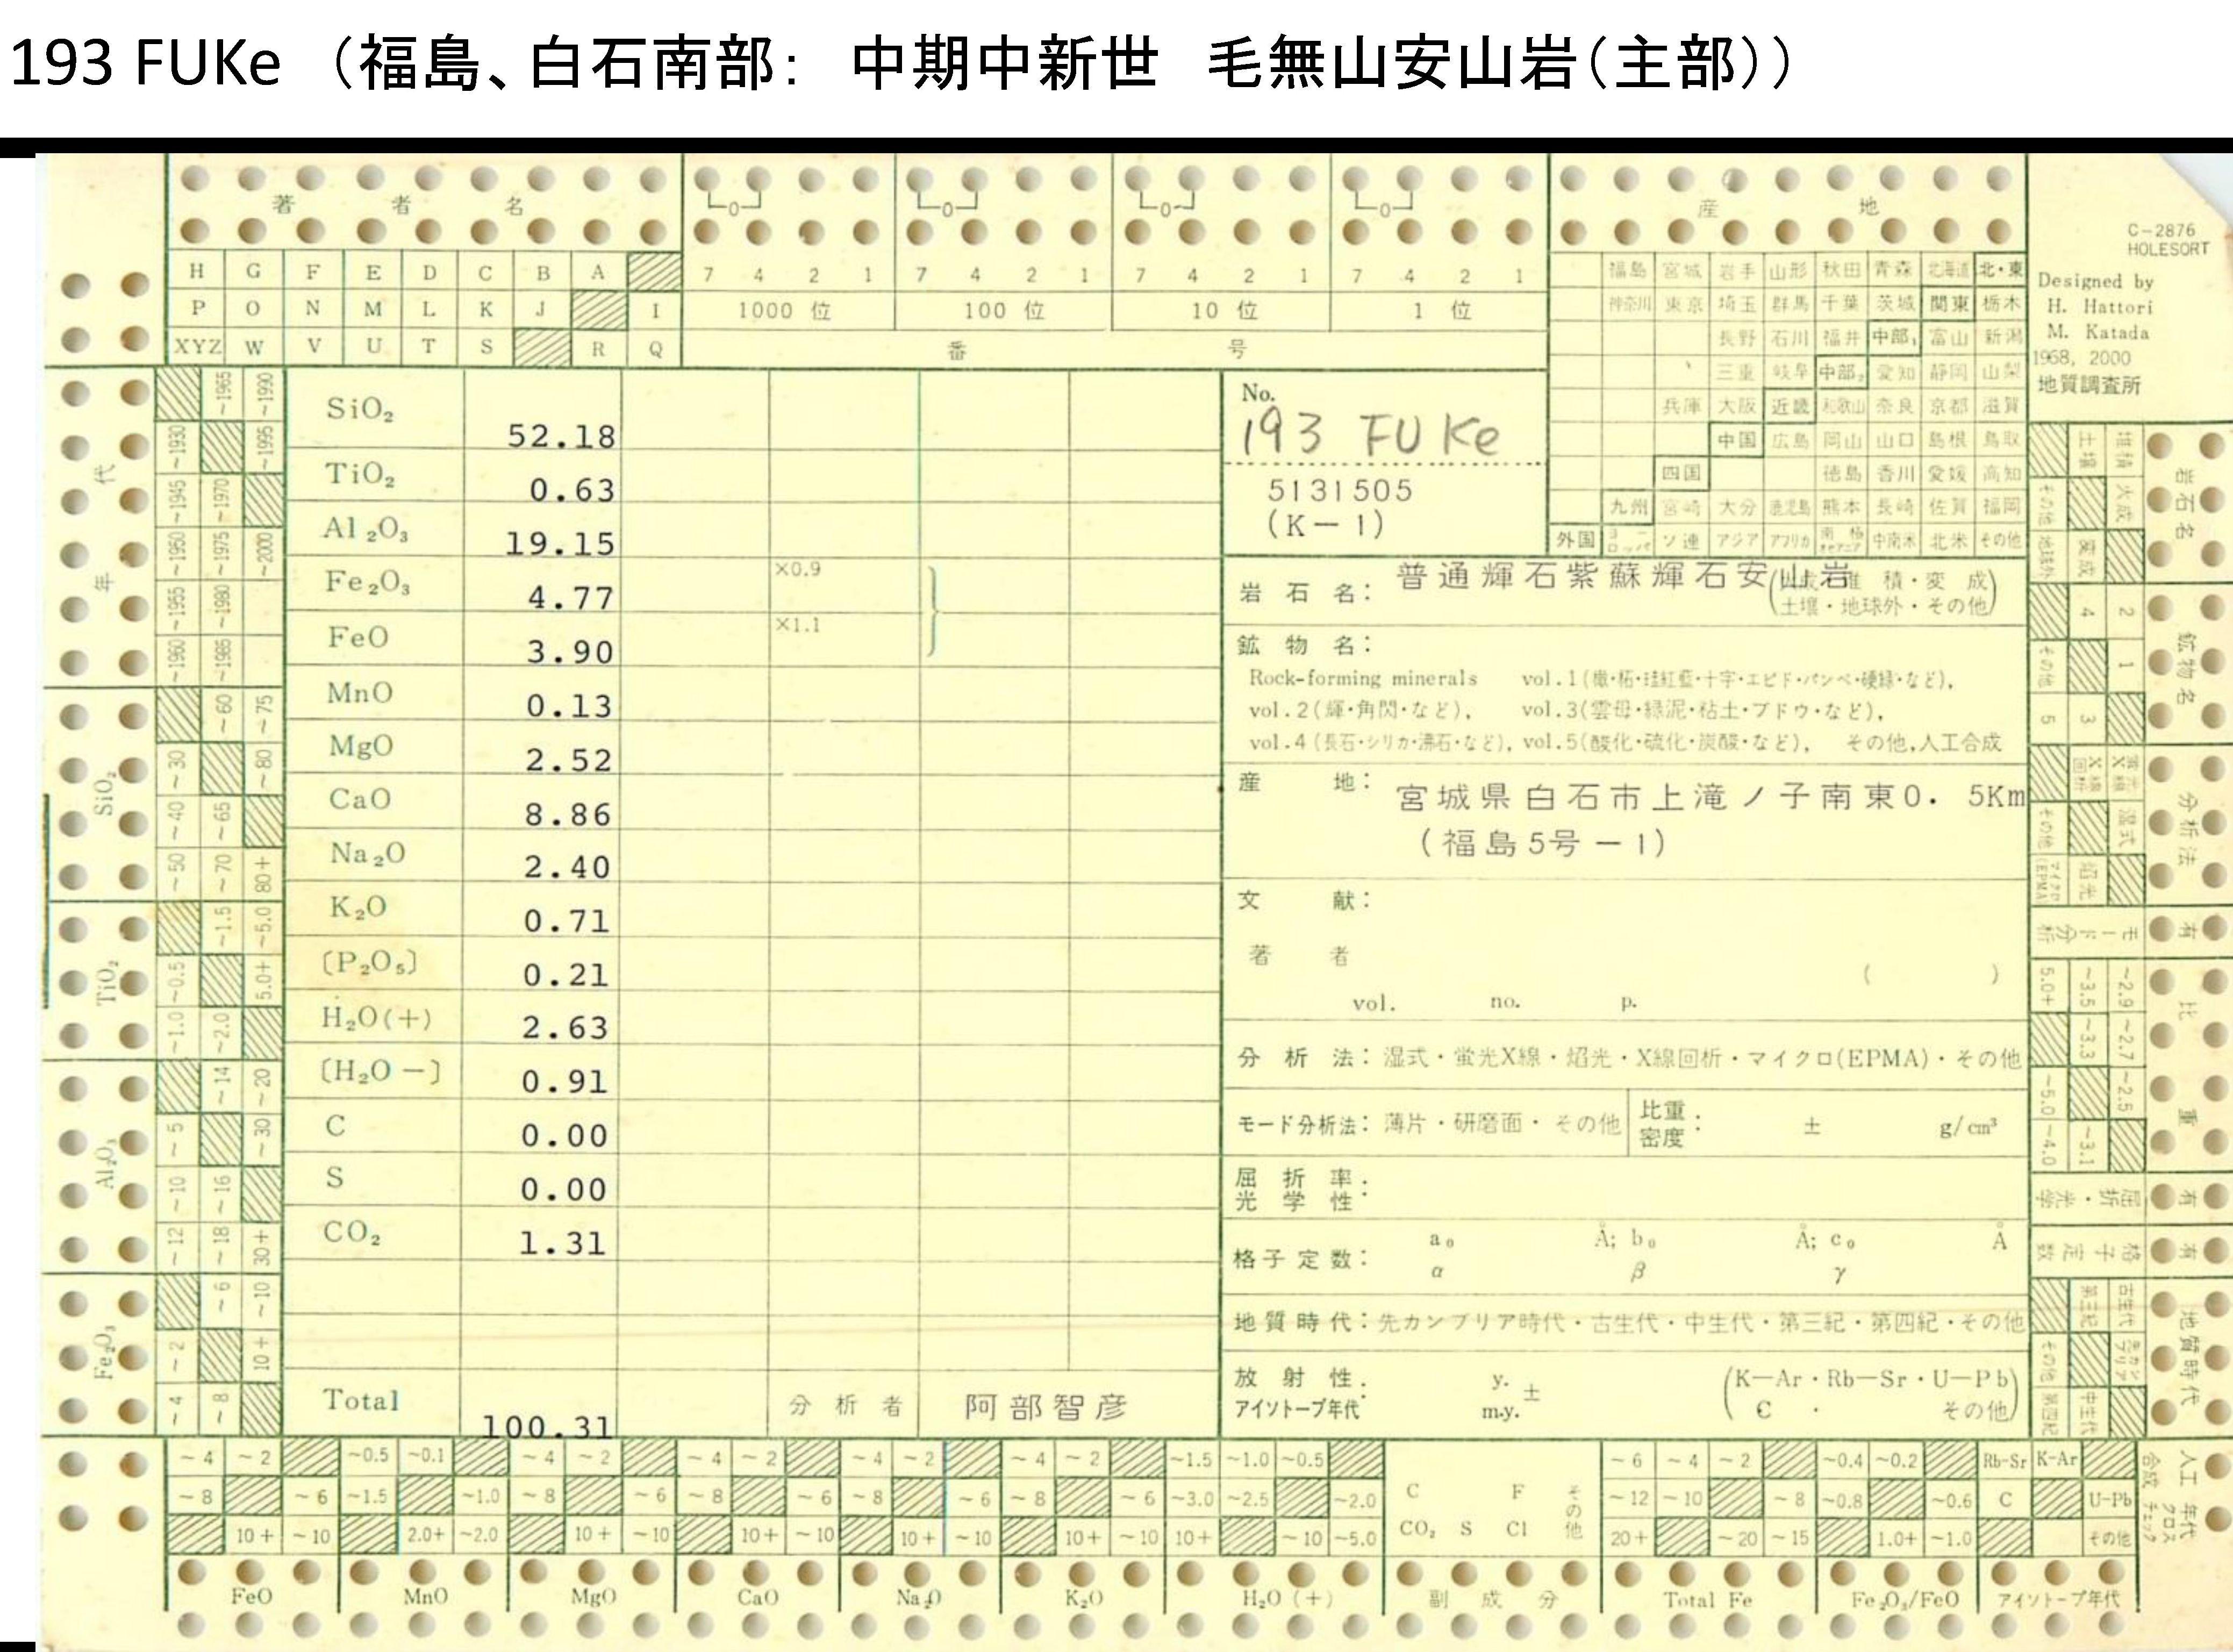 193 FUKe （福島、白石南部： 中期中新世 毛無山安山岩（主部））
著 者 名
0 0 0 0
産 地
C-2876
HOLESORT
Designed by
H. Hattori
M. Katada
1968, 2000
地質調査所
H G F E D C B A
P O N M L K J I
XYZ W V U T S R Q
7 4 2 1 7 4 2 1 7 4 2 1 7 4 2 1
1000 位 100 位 10 位 1 位
番 号
福島 宮城 岩手 山形 秋田 青森 北海道 北・東
神奈川 東京 埼玉 群馬 千葉 茨城 関東 栃木
長野 石川 福井 中部₁ 富山 新潟
三重 岐阜 中部₂ 愛知 静岡 山梨
兵庫 大阪 近畿 和歌山 奈良 京都 滋賀
中国 広島 岡山 山口 島根 鳥取
四国 徳島 香川 愛媛 高知
九州 宮崎 大分 鹿児島 熊本 長崎 佐賀 福岡
外国 ヨーロッパ ソ連 アジア アフリカ 南極 中南米 北米 その他
年 代
~1965 ~1990
~1930 ~1995
~1945 ~1970
~1950 ~1975 ~2000
~1955 ~1980
~1960 ~1985
SiO₂
~60 ~75
~30 ~80
~40 ~65
~50 ~70 80+
TiO₂
~1.5 ~5.0
~0.5 5.0+
~1.0 ~2.0
Al₂O₃
~14 ~20
~5 ~30
~10 ~16
~12 ~18 30+
Fe₂O₃
~6 ~10
~2 10+
~4 ~8
SiO₂ 52.18
TiO₂ 0.63
Al₂O₃ 19.15
Fe₂O₃ 4.77 ×0.9
FeO 3.90 ×1.1
MnO 0.13
MgO 2.52
CaO 8.86
Na₂O 2.40
K₂O 0.71
〔P₂O₅〕 0.21
H₂O(+) 2.63
〔H₂O −〕 0.91
C 0.00
S 0.00
CO₂ 1.31
Total 100.31
分 析 者 阿部智彦
No.
193 FUKe
5131505
(K−1)
岩 石 名： 普通輝石紫蘇輝石安山岩
(火成・堆積・変成
土壌・地球外・その他)
鉱 物 名：
Rock-forming minerals vol.1(橄・柘・珪紅藍・十字・エピド・パンペ・硬緑・など),
vol.2(輝・角閃・など), vol.3(雲母・緑泥・粘土・ブドウ・など),
vol.4(長石・シリカ・沸石・など), vol.5(酸化・硫化・炭酸・など), その他,人工合成
産 地： 宮城県白石市上滝ノ子南東0. 5Km
(福島5号−1)
文 献：
著 者
( )
vol. no. p.
分 析 法：湿式・蛍光X線・焰光・X線回析・マイクロ(EPMA)・その他
モード分析法：薄片・研磨面・その他
比重 密度： ± g/cm³
屈 折 率 光 学 性：
格子定数： a₀ Å; b₀ Å; c₀ Å
α β γ
地質時代：先カンブリア時代・古生代・中生代・第三紀・第四紀・その他
放 射 性 アイソトープ年代： y. m.y. ± (K−Ar・Rb−Sr・U−Pb
C ・ その他)
岩石名
堆積 土壌
火成 その他
変成 地球外
鉱物名
2 4
1 その他
3 5
分析法
蛍光X線 X線回析
湿式 その他
焰光 マイクロ(EPMA)
有 モード分析
比 重
~2.9 ~3.5 5.0+
~2.7 ~3.3
~2.5 ~5.0
~3.1 ~4.0
有 屈折・光学
有 格子定数
地質時代
古生代 第三紀
先カンブリア その他
中生代 第四紀
~4 ~2 ~0.5 ~0.1 ~4 ~2 ~4 ~2 ~4 ~2 ~4 ~2 ~1.5 ~1.0 ~0.5 ~6 ~4 ~2 ~0.4 ~0.2 Rb-Sr K-Ar
~8 ~6 ~1.5 ~1.0 ~8 ~6 ~8 ~6 ~8 ~6 ~8 ~6 ~3.0 ~2.5 ~2.0 C F その他 ~12 ~10 ~8 ~0.8 ~0.6 C U-Pb
10+ ~10 2.0+ ~2.0 10+ ~10 10+ ~10 10+ ~10 10+ ~10 10+ ~10 ~5.0 CO₂ S Cl 20+ ~20 ~15 1.0+ ~1.0 その他
人工合成 年代クロスチェック
FeO MnO MgO CaO Na₂O K₂O H₂O (+) 副 成 分 Total Fe Fe₂O₃/FeO アイソトープ年代